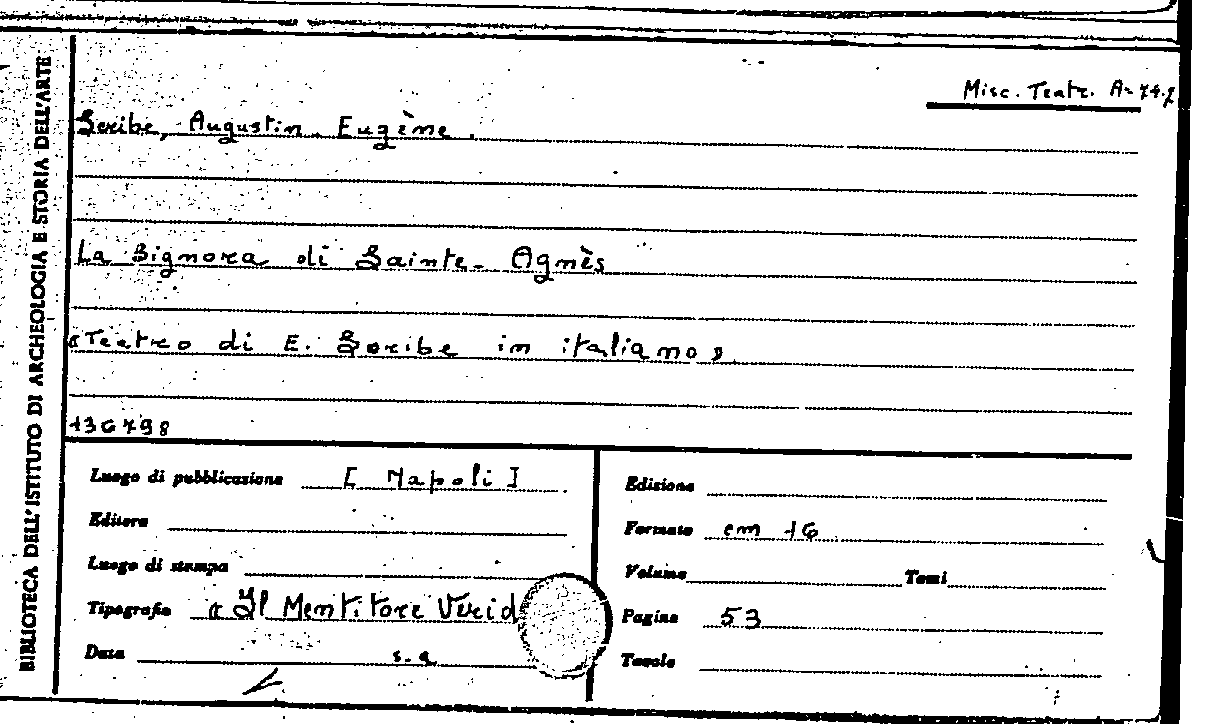 BIBLIOTECA DELL'ISTITUTO DI ARCHEOLOGIA E STORIA DELL'ARTE
Misc. Teatr. A-74.7
Scribe, Augustin-Eugène.
La Signora di Sainte-Agnès
«Teatro di E. Scribe in italiano».
136798
Luogo di pubblicazione [Napoli]
Editore
Luogo di stampa
Tipografia « Il Mentitore Verid
Data s.a
Edizione
Formato cm 16
Volume Tomi
Pagine 53
Tavole